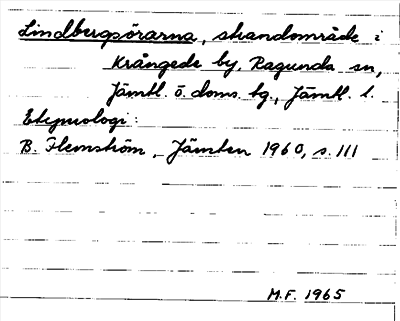 Lindbergsörarna, strandområde i
Krångede by, Ragunda sn,
Jämtl. ö. doms. tg., Jämtl. l.
Etymologi:
B. Flemström, Jämten 1960, s. 111
M.F. 1965